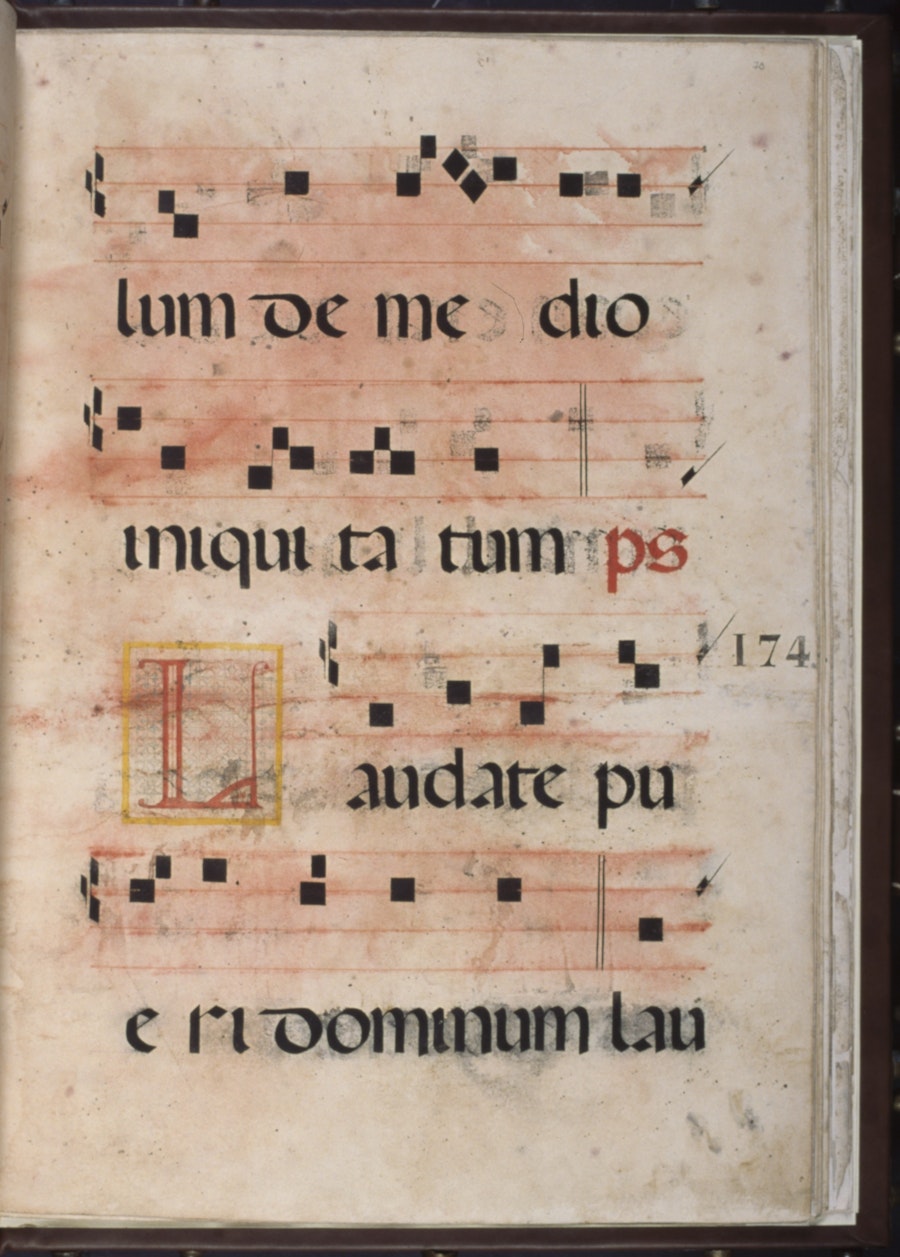 lum de me dio
iniqui ta tum ps
174
Laudate pu
e ri dominum lau